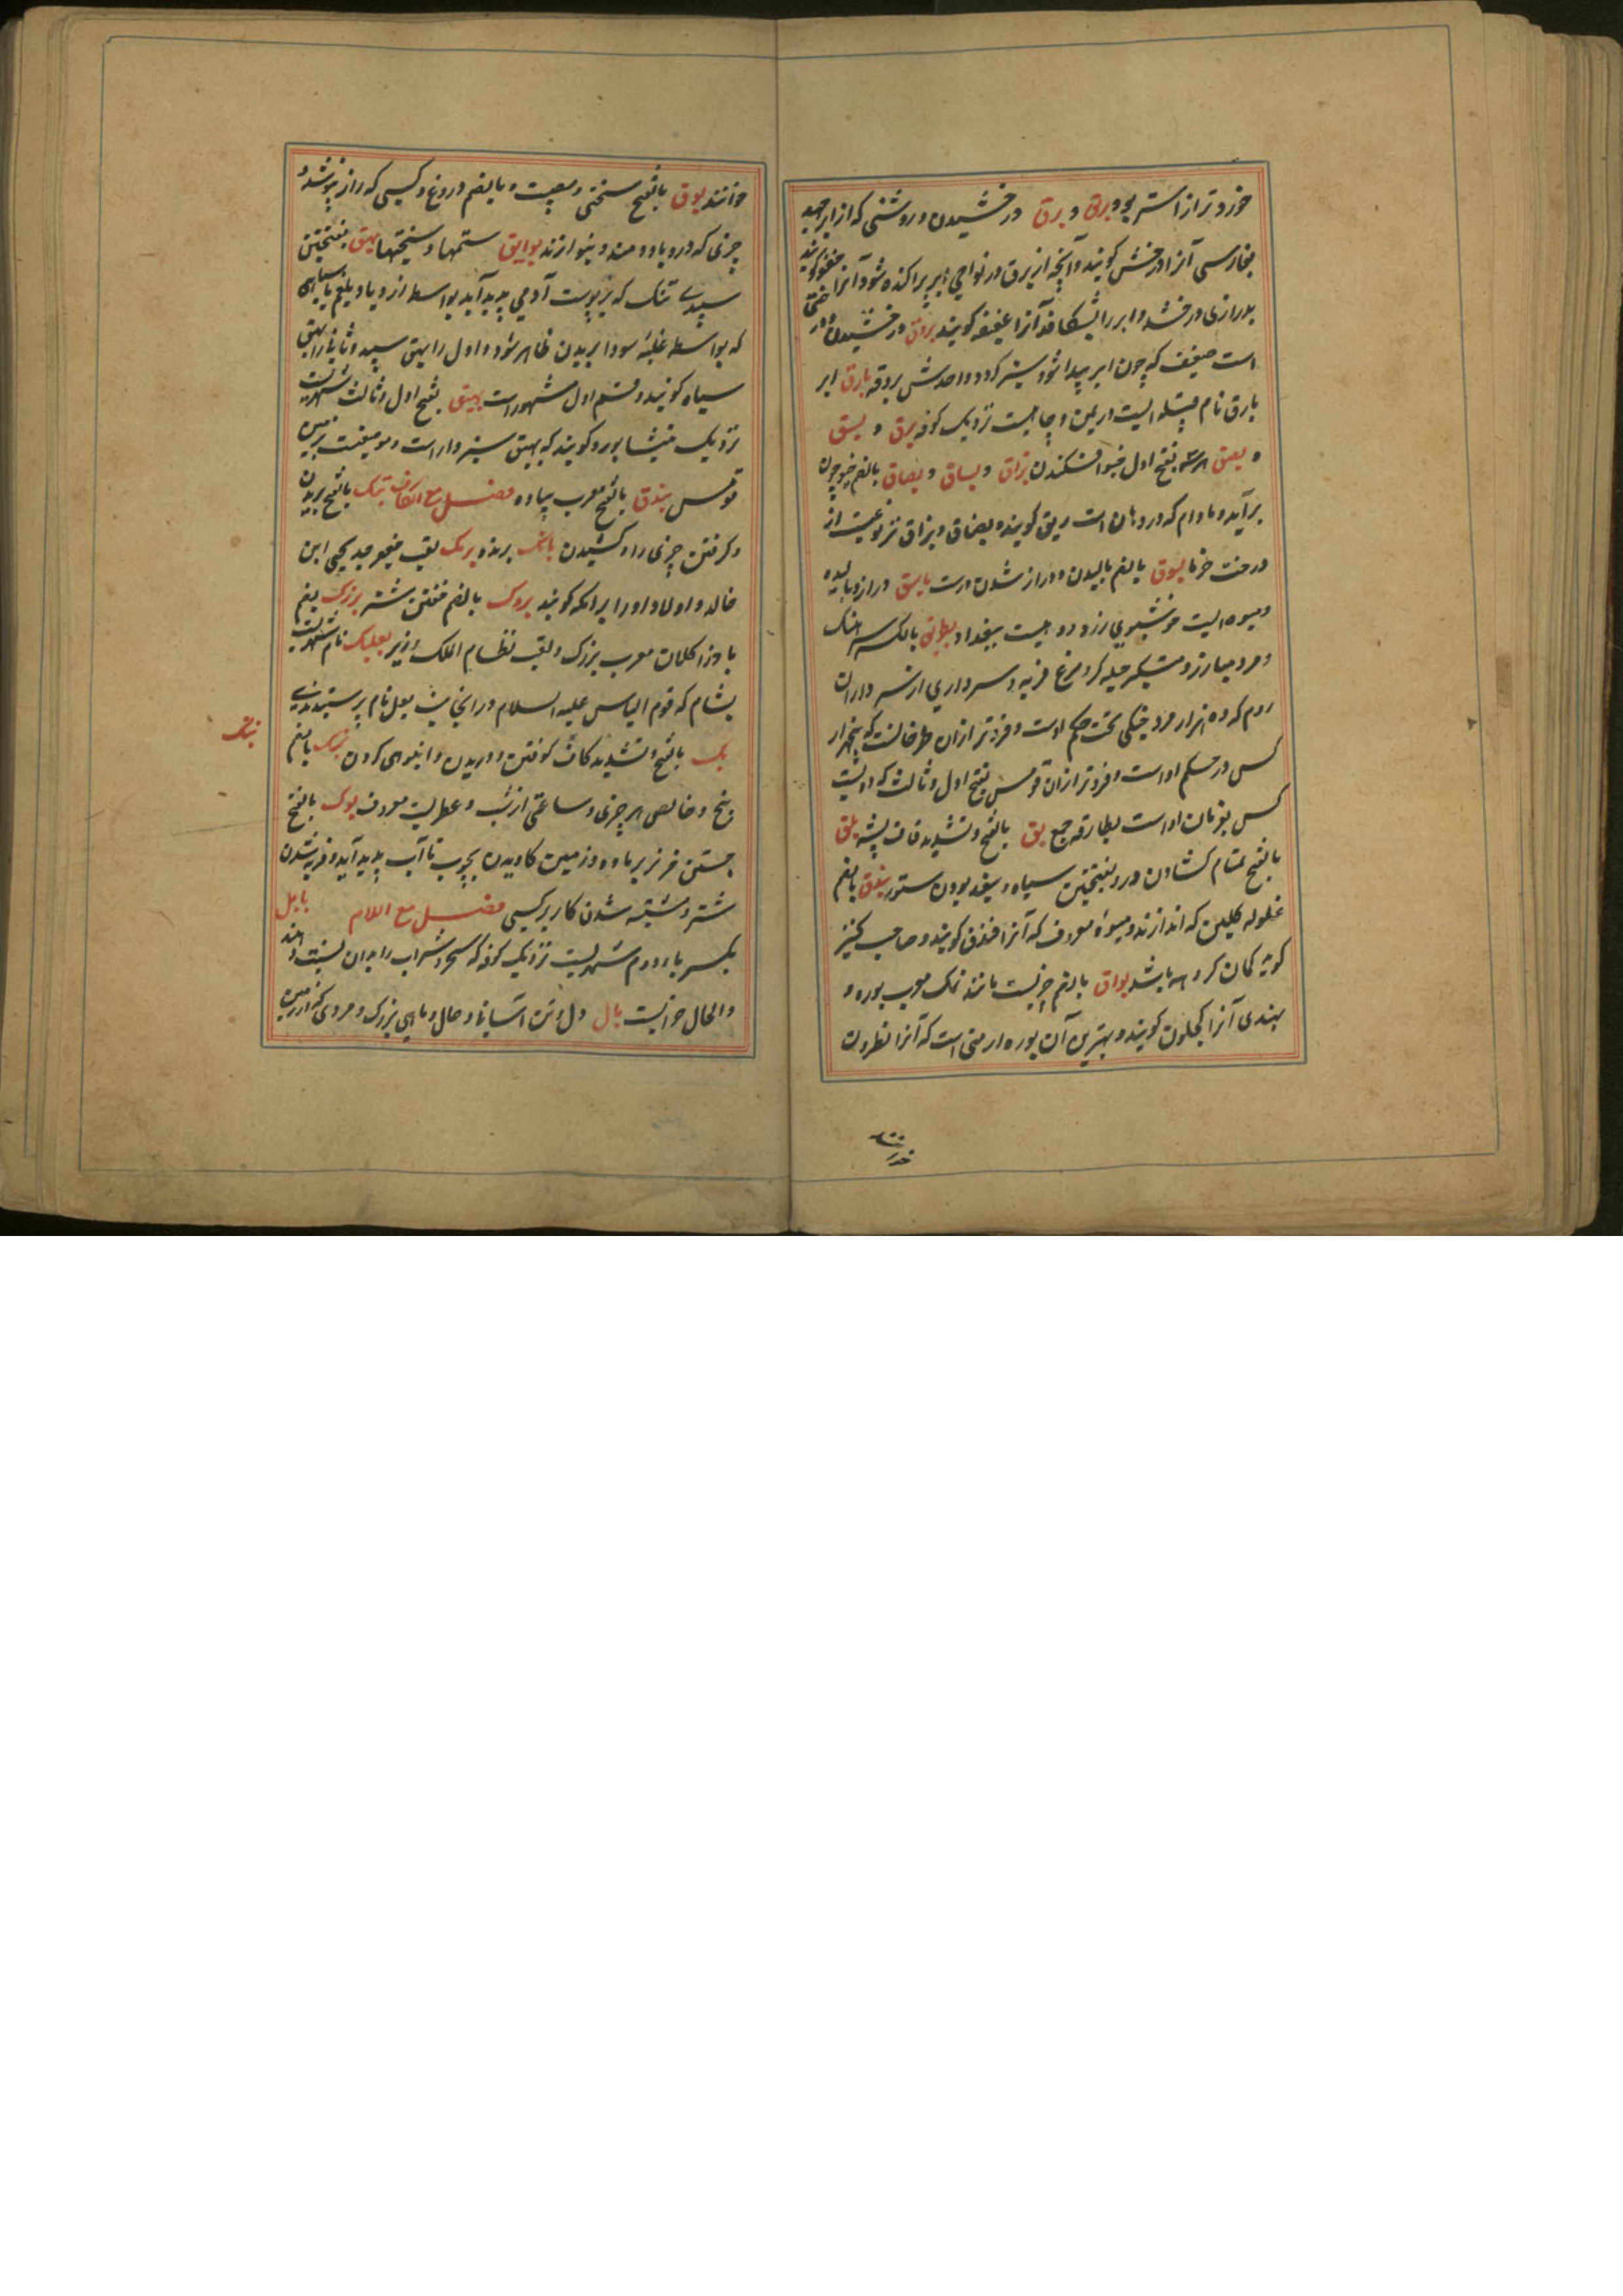 خوردتر از استر بود برق و برق درخشیدن و روشنی که از ابر جهد
بفارسی آنرا درخش گویند و آنچه از برق در نواحی ابر پراکنده شود آنرا خفو گویند
بدرازی درخشد و ابر را بشکافد آنرا عقیقه گویند بروق درخشیدن و درختی
است ضعیف که چون ابر پیدا شود سبز گردد واحدش بروقه بارق ابر
بارق نام قبیله ایست در یمن و جاییست نزدیک کوفه بزق و بسق
و بصق هر سه بفتح اول خیو افکندن بزاق و بساق و بصاق بالضم خیو چون
برآید و مادام که در دهان است ریق گویند و بصاق و بزاق نیز نوعیست از
درخت خرما بسوق بالضم بالیدن و دراز شدن درست باسق دراز و بالیده
و میوه ایست خوشبوی زرد و دهیست ببغداد بطریق بالکسر سرهنگ
و مرد مبارز و متکبر حیله گر و مرغ فربه و سرداری از سرداران
روم که ده هزار مرد جنگی تحت حکم اوست و فروتر ازان طرخانست که پنجهزار
کس در حکم اوست و فروتر ازان قومس بفتح اول و ثالث که دویست
کس بفرمان اوست بطارقه جمع بق بالفتح و تشدید قاف پشه بلق
بالفتح تمام گشادن در و بفتحتین سیاه و سفید بودن ستور بندق بالضم
غلوله گلین که اندازند و میوه معروف که آنرا فندق گویند و صاحب کنیز
گوید کمان گروهه باشد بواق بالضم چیزیست مانند نمک معرب بوره و
بهندی آنرا کچلون گویند و بهترین آن بوره ارمنی است که آنرا نطرون
خوانند بوق بالفتح سختی و مصیبت و بالضم دروغ و کسی که راز نپوشد و
چیزی که درو باد دمند و بنوازند بوایق ستمها و سختیها بهق بفتحتین
سپیدی تنک که بر پوست آدمی پدید آید بواسطه ازدیاد بلغم یا سیاهی
که بواسطه غلبه سودا بر بدن ظاهر شود و اول را بهق سپید و ثانی را بهق
سیاه گویند و قسم اول مشهور است بیهق بفتح اول و ثالث شهریست
نزدیک نیشابور و گویند که بیهق سبزوار است و موضعیست بزمین
قومس بیذق بالفتح معرب پیاده فصل مع الکاف بتک بالفتح بریدن
و گرفتن چیزی را و کشیدن باتک برنده برمک لقب جعفر جد یحیی ابن
خالد و اولاد او را برامکه گویند بروک بالضم خفتن شتر بزرک بضم
با و زا کلمان معرب بزرگ و لقب نظام الملک وزیر بعلبک نام شهریست
بشام که قوم الیاس علیه السلام در انجا بت بعل نام پرستیدندی
بک بالفتح و تشدید کاف کوفتن و دریدن و انبوهی کردن بنک بالضم
بنک
بیخ و خالص هر چیزی و ساعتی از شب و عطریست معروف بوک بالفتح
جستن خر نر بر ماده و زمین کاویدن بچوب تا آب پدید آید و فربه شدن
شتر و مشتبه شدن کار بر کسی فصل مع اللام بابل
بکسر باء دوم شهریست نزدیک کوفه که سحر و شراب را بدان نسبت دهند
والحال خرابست بال دل و تن آسانی و حال و ماهی بزرگ و مردی که از زمین